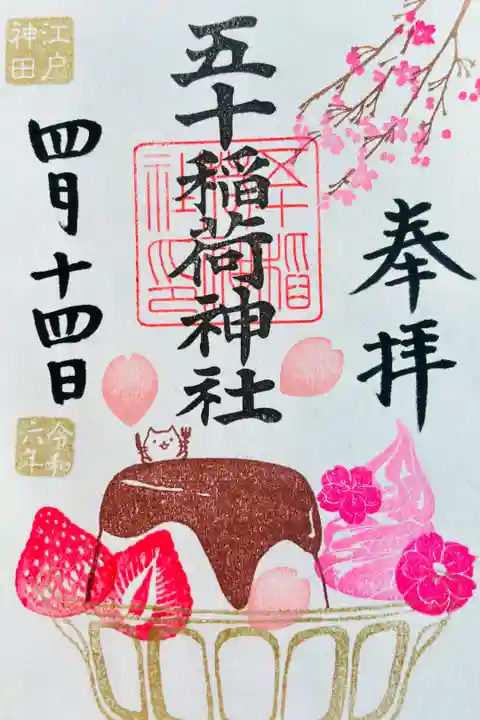 奉拝
五十稲荷神社
江戸
神田
四月十四日
令和
六年